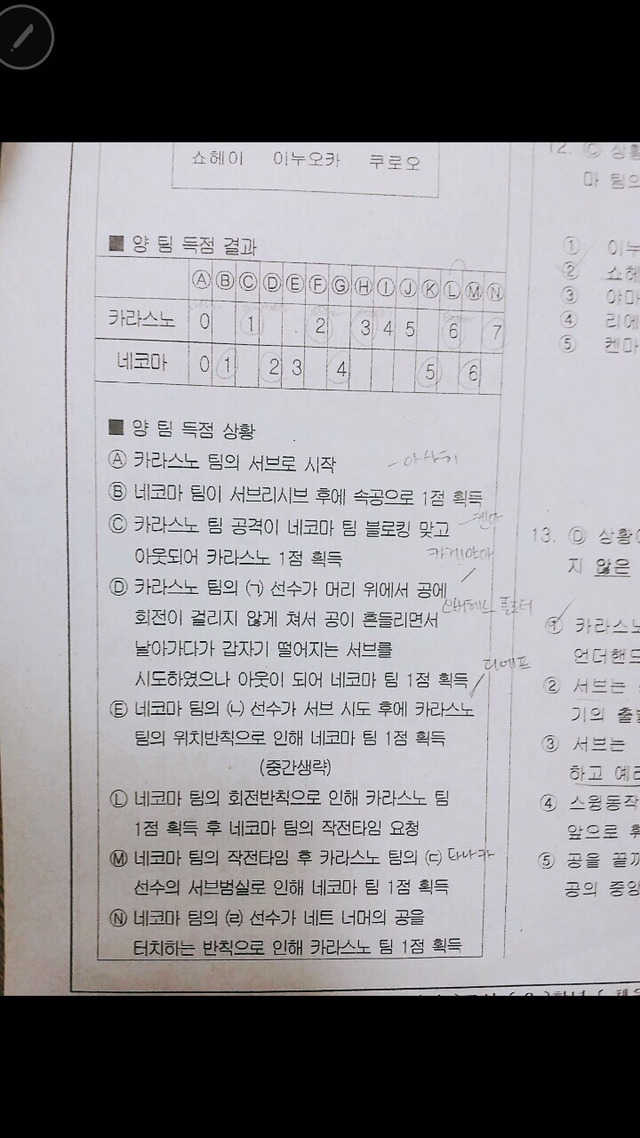 쇼헤이 이누오카 쿠로오
■ 양 팀 득점 결과
Ⓐ Ⓑ Ⓒ Ⓓ Ⓔ Ⓕ Ⓖ Ⓗ Ⓘ Ⓙ Ⓚ Ⓛ Ⓜ Ⓝ
카라스노 0 1 2 3 4 5 6 7
네코마 0 1 2 3 4 5 6
■ 양 팀 득점 상황
Ⓐ 카라스노 팀의 서브로 시작
Ⓑ 네코마 팀이 서브리시브 후에 속공으로 1점 획득
Ⓒ 카라스노 팀 공격이 네코마 팀 블로킹 맞고
아웃되어 카라스노 1점 획득
카게야마
Ⓓ 카라스노 팀의 (ㄱ) 선수가 머리 위에서 공에
회전이 걸리지 않게 쳐서 공이 흔들리면서
날아가다가 갑자기 떨어지는 서브를
시도하였으나 아웃이 되어 네코마 팀 1점 획득
Ⓔ 네코마 팀의 (ㄴ) 선수가 서브 시도 후에 카라스노
팀의 위치반칙으로 인해 네코마 팀 1점 획득
(중간생략)
Ⓛ 네코마 팀의 회전반칙으로 인해 카라스노 팀
1점 획득 후 네코마 팀의 작전타임 요청
Ⓜ 네코마 팀의 작전타임 후 카라스노 팀의 (ㄷ) 타나카
선수의 서브범실로 인해 네코마 팀 1점 획득
Ⓝ 네코마 팀의 (ㄹ) 선수가 네트 너머의 공을
터치하는 반칙으로 인해 카라스노 팀 1점 획득
12. Ⓒ 상황
마 팀의
① 이누
② 쇼헤
③ 야마
④ 리에
⑤ 켄마
13. Ⓓ 상황
지 않은
① 카라스노
언더핸드
② 서브는
기의 출
③ 서브는
하고 예리
④ 스윙동작
앞으로
⑤ 공을
공의 중앙